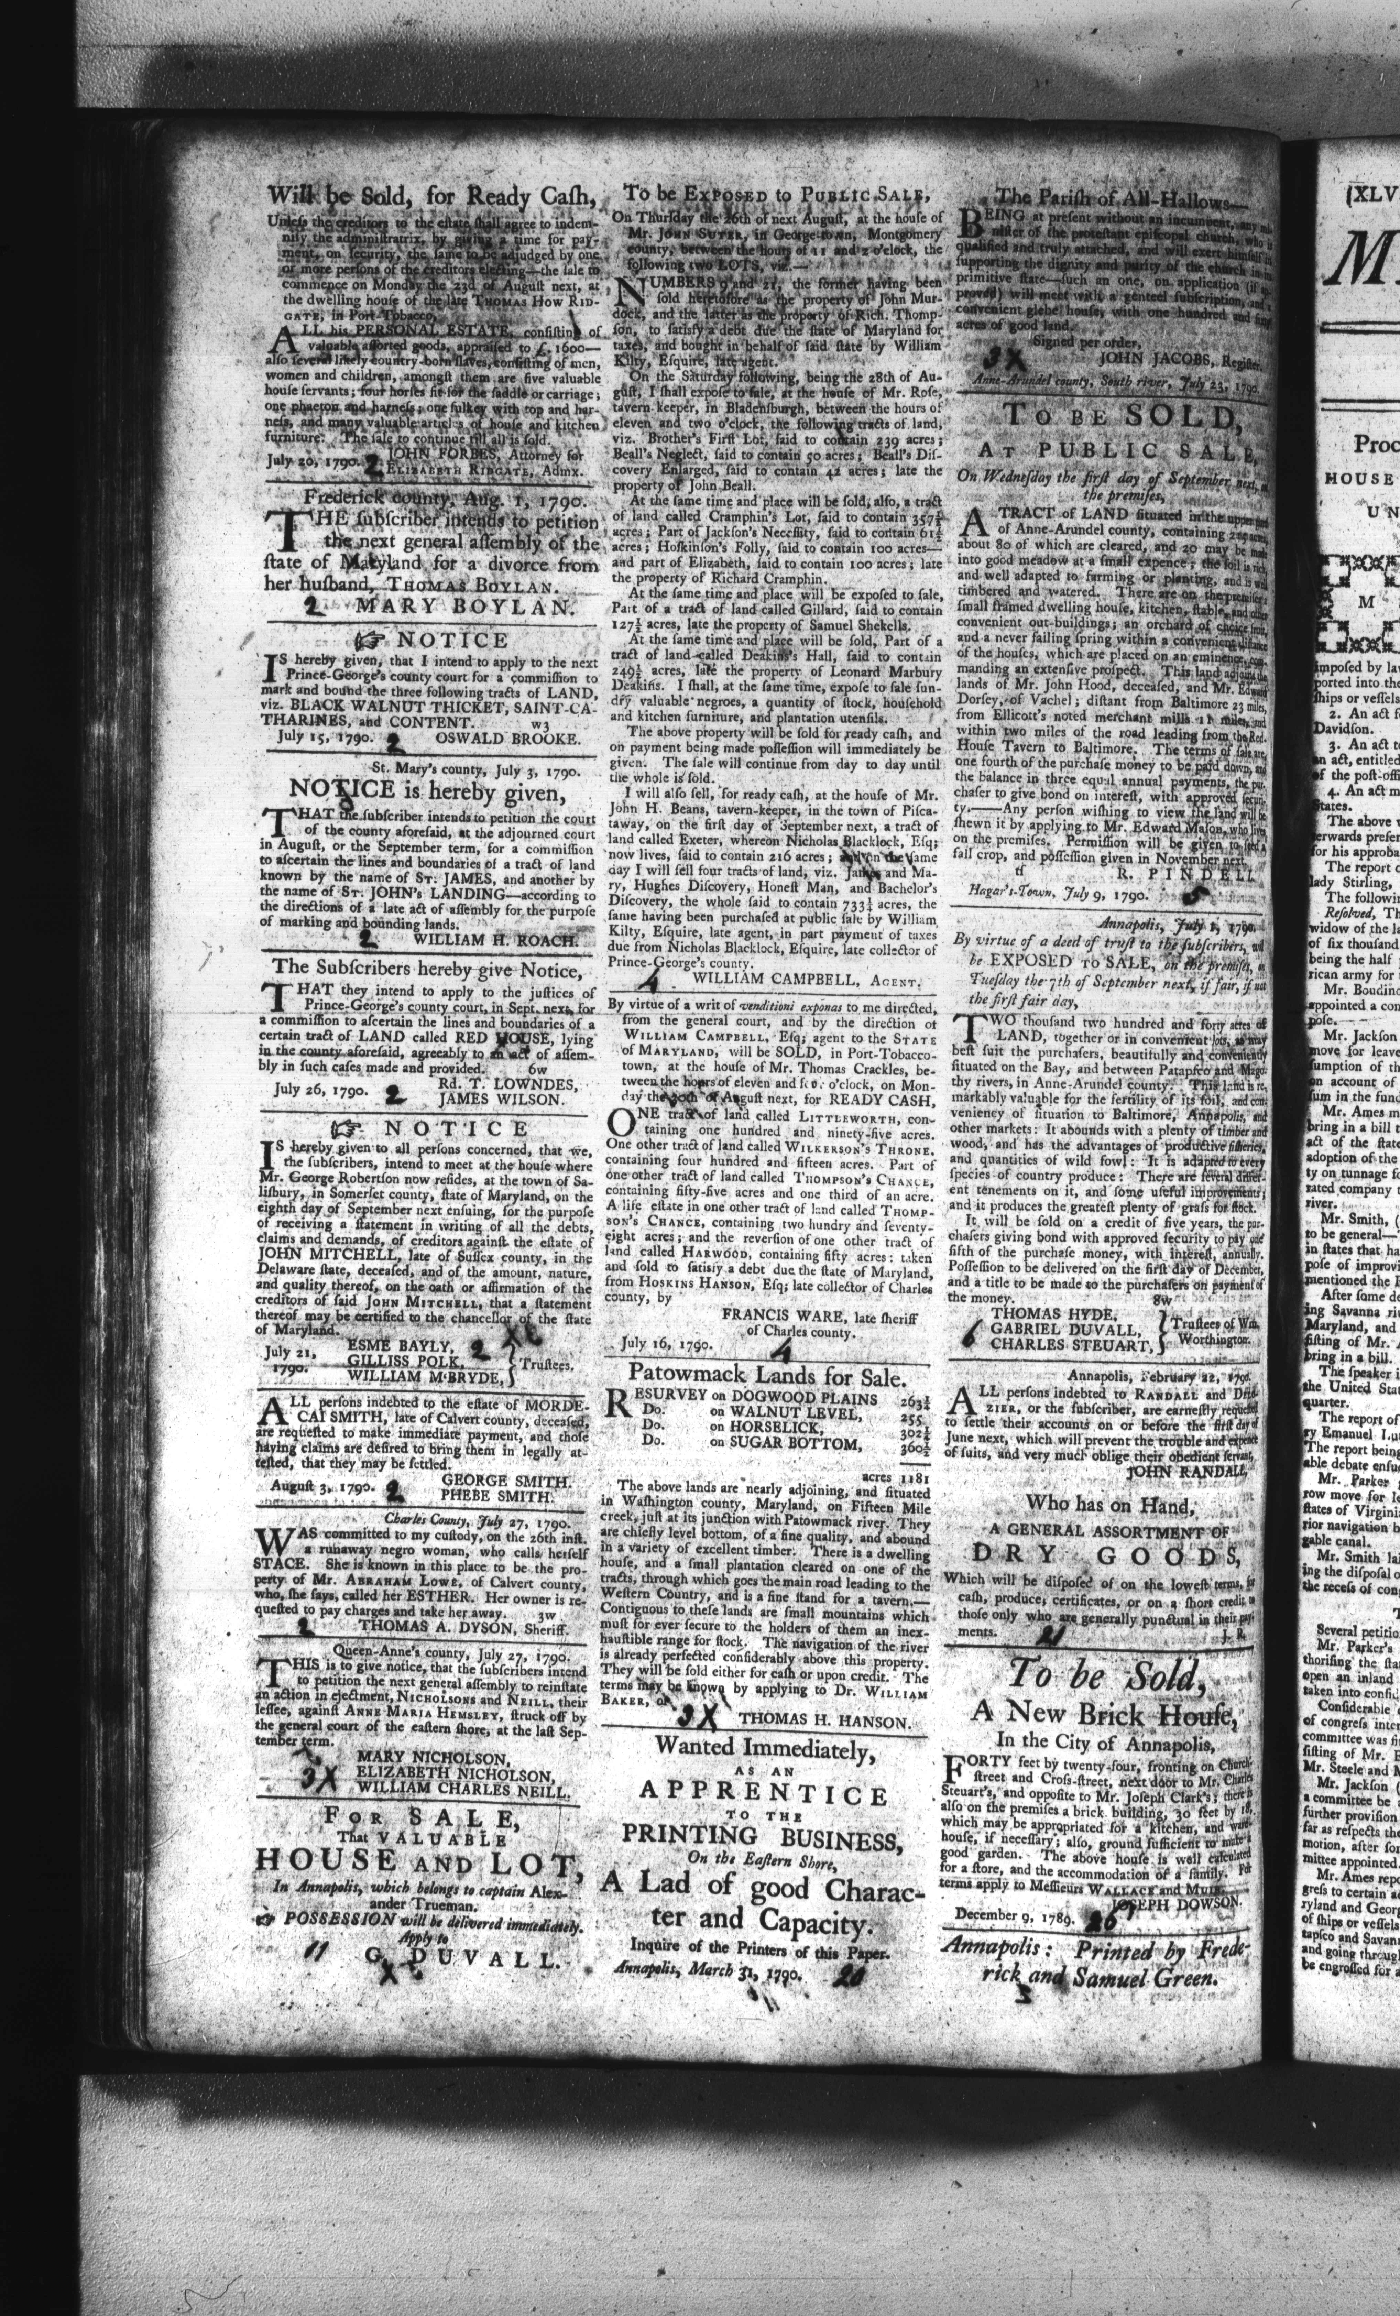 Will be Sold, for Ready Caſh,
Unleſs the creditors to the eſtate ſhall agree to indem-
nify the adminiſtratrix, by giving a time for pay-
ment, on ſecurity, the ſame to be adjudged by one
or more perſons of the creditors electing—the ſale to
commence on Monday the 23d of Auguſt next, at
the dwelling houſe of the late THOMAS HOW RID-
GATE, in Port-Tobacco,
ALL his PERSONAL ESTATE, conſiſting of
valuable aſſorted goods, appraiſed to £. 1600—
alſo ſeveral likely country-born ſlaves, conſiſting of men,
women and children, amongſt them are five valuable
houſe ſervants; four horſes fit for the ſaddle or carriage;
one phaeton and harneſs; one ſulkey with top and har-
neſs, and many valuable articles of houſe and kitchen
furniture. The ſale to continue till all is ſold.
JOHN FORBES, Attorney for
July 20, 1790. 2 ELIZABETH RIDGATE, Admx.
Frederick county, Aug. 1, 1790.
THE ſubſcriber intends to petition
the next general aſſembly of the
ſtate of Maryland for a divorce from
her huſband, THOMAS BOYLAN.
2 MARY BOYLAN.
☞ NOTICE
IS hereby given, that I intend to apply to the next
Prince-George's county court for a commiſſion to
mark and bound the three following tracts of LAND,
viz. BLACK WALNUT THICKET, SAINT-CA-
THARINES, and CONTENT. w3
July 15, 1790. 2 OSWALD BROOKE.
St. Mary's county, July 3, 1790.
NOTICE is hereby given,
THAT the ſubſcriber intends to petition the court
of the county aforeſaid, at the adjourned court
in Auguſt, or the September term, for a commiſſion
to aſcertain the lines and boundaries of a tract of land
known by the name of ST. JAMES, and another by
the name of ST. JOHN's LANDING—according to
the directions of a late act of aſſembly for the purpoſe
of marking and bounding lands.
2 WILLIAM H. ROACH.
The Subſcribers hereby give Notice,
THAT they intend to apply to the juſtices of
Prince-George's county court, in Sept. next, for
a commiſſion to aſcertain the lines and boundaries of a
certain tract of LAND called RED HOUSE, lying
in the county aforeſaid, agreeably to an act of aſſem-
bly in ſuch caſes made and provided. 6w
Rd. T. LOWNDES,
July 26, 1790. 2 JAMES WILSON.
☞ NOTICE
IS hereby given to all perſons concerned, that we,
the ſubſcribers, intend to meet at the houſe where
Mr. George Robertſon now reſides, at the town of Sa-
liſbury, in Somerſet county, ſtate of Maryland, on the
eighth day of September next enſuing, for the purpoſe
of receiving a ſtatement in writing of all the debts,
claims and demands, of creditors againſt the eſtate of
JOHN MITCHELL, late of Suſſex county, in the
Delaware ſtate, deceaſed, and of the amount, nature,
and quality thereof, on the oath or affirmation of the
creditors of ſaid JOHN MITCHELL, that a ſtatement
thereof may be certified to the chancellor of the ſtate
of Maryland.
ESME BAYLY, 2
July 21, GILLISS POLK, } Truſtees.
1790. WILLIAM M‘BRYDE,
ALL perſons indebted to the eſtate of MORDE-
CAI SMITH, late of Calvert county, deceaſed,
are requeſted to make immediate payment, and thoſe
having claims are deſired to bring them in legally at-
teſted, that they may be ſettled.
GEORGE SMITH.
Auguſt 3, 1790. 2 PHEBE SMITH.
Charles County, July 27, 1790.
WAS committed to my cuſtody, on the 26th inſt.
a runaway negro woman, who calls herſelf
STACE. She is known in this place to be the pro-
perty of Mr. ABRAHAM LOWE, of Calvert county,
who, ſhe ſays, called her ESTHER. Her owner is re-
queſted to pay charges and take her away. 3w
2 THOMAS A. DYSON, Sheriff.
Queen-Anne's county, July 27, 1790.
THIS is to give notice, that the ſubſcribers intend
to petition the next general aſſembly to reinſtate
an action in ejectment, NICHOLSONS and NEILL, their
leſſee, againſt ANNE MARIA HEMSLEY, ſtruck off by
the general court of the eaſtern ſhore, at the laſt Sep-
tember term.
MARY NICHOLSON,
3X ELIZABETH NICHOLSON,
WILLIAM CHARLES NEILL.
FOR SALE,
That VALUABLE
HOUSE AND LOT,
In Annapolis, which belongs to captain Alex-
ander Trueman.
☞ POSSESSION will be delivered immediately.
Apply to
11 G. DUVALL.
X
To be EXPOSED to PUBLIC SALE,
On Thurſday the 26th of next Auguſt, at the houſe of
Mr. JOHN SUTER, in George-town, Montgomery
county, between the hours of 11 and 2 o'clock, the
following two LOTS, viz.—
NUMBERS 9 and 21, the former having been
ſold heretofore as the property of John Mur-
dock, and the latter as the property of Rich. Thomp-
ſon, to ſatisfy a debt due the ſtate of Maryland for
taxes, and bought in behalf of ſaid ſtate by William
Kilty, Eſquire, late agent.
On the Saturday following, being the 28th of Au-
guſt, I ſhall expoſe to ſale, at the houſe of Mr. Roſe,
tavern-keeper, in Bladenſburgh, between the hours of
eleven and two o'clock, the following tracts of land,
viz. Brother's Firſt Lot, ſaid to contain 239 acres;
Beall's Neglect, ſaid to contain 50 acres; Beall's Diſ-
covery Enlarged, ſaid to contain 42 acres; late the
property of John Beall.
At the ſame time and place will be ſold, alſo, a tract
of land called Cramphin's Lot, ſaid to contain 357½
acres; Part of Jackſon's Neceſſity, ſaid to contain 61½
acres; Hoſkinſon's Folly, ſaid to contain 100 acres—
and part of Elizabeth, ſaid to contain 100 acres; late
the property of Richard Cramphin.
At the ſame time and place will be expoſed to ſale,
Part of a tract of land called Gillard, ſaid to contain
127½ acres, late the property of Samuel Shekells.
At the ſame time and place will be ſold, Part of a
tract of land called Deakins's Hall, ſaid to contain
249½ acres, late the property of Leonard Marbury
Deakins. I ſhall, at the ſame time, expoſe to ſale ſun-
dry valuable negroes, a quantity of ſtock, houſehold
and kitchen furniture, and plantation utenſils.
The above property will be ſold for ready caſh, and
on payment being made poſſeſſion will immediately be
given. The ſale will continue from day to day until
the whole is ſold.
I will alſo ſell, for ready caſh, at the houſe of Mr.
John H. Beans, tavern-keeper, in the town of Piſca-
taway, on the firſt day of September next, a tract of
land called Exeter, whereon Nicholas Blacklock, Eſq;
now lives, ſaid to contain 216 acres; and on the ſame
day I will ſell four tracts of land, viz. James and Ma-
ry, Hughes Diſcovery, Honeſt Man, and Bachelor's
Diſcovery, the whole ſaid to contain 733¼ acres, the
ſame having been purchaſed at public ſale by William
Kilty, Eſquire, late agent, in part payment of taxes
due from Nicholas Blacklock, Eſquire, late collector of
Prince-George's county.
4 WILLIAM CAMPBELL, AGENT.
By virtue of a writ of venditioni exponas to me directed,
from the general court, and by the direction of
WILLIAM CAMPBELL, Eſq; agent to the STATE
of MARYLAND, will be SOLD, in Port-Tobacco-
town, at the houſe of Mr. Thomas Crackles, be-
tween the hours of eleven and o'clock, on Mon-
day the 30th of Auguſt next, for READY CASH,
ONE tract of land called LITTLEWORTH, con-
taining one hundred and ninety-five acres.
One other tract of land called WILKERSON'S THRONE,
containing four hundred and fifteen acres. Part of
one other tract of land called THOMPSON'S CHANCE,
containing fifty-five acres and one third of an acre.
A life eſtate in one other tract of land called THOMP-
SON'S CHANCE, containing two hundry and ſeventy-
eight acres; and the reverſion of one other tract of
land called HARWOOD, containing fifty acres: taken
and ſold to ſatisfy a debt due the ſtate of Maryland,
from HOSKINS HANSON, Eſq; late collector of Charles
county, by
FRANCIS WARE, late ſheriff
of Charles county.
July 16, 1790. 4
Patowmack Lands for Sale.
RESURVEY on DOGWOOD PLAINS 263¼
Do. on WALNUT LEVEL, 255
Do. on HORSELICK, 302¼
Do. on SUGAR BOTTOM, 360½
acres 1181
The above lands are nearly adjoining, and ſituated
in Waſhington county, Maryland, on Fifteen Mile
creek, juſt at its junction with Patowmack river. They
are chiefly level bottom, of a fine quality, and abound
in a variety of excellent timber. There is a dwelling
houſe, and a ſmall plantation cleared on one of the
tracts, through which goes the main road leading to the
Weſtern Country, and is a fine ſtand for a tavern.—
Contiguous to theſe lands are ſmall mountains which
muſt for ever ſecure to the holders of them an inex-
hauſtible range for ſtock. The navigation of the river
is already perfected conſiderably above this property.
They will be ſold either for caſh or upon credit. The
terms may be known by applying to Dr. WILLIAM
BAKER, or
3X THOMAS H. HANSON.
Wanted Immediately,
AS AN
APPRENTICE
TO THE
PRINTING BUSINESS,
On the Eaſtern Shore,
A Lad of good Charac-
ter and Capacity.
Inquire of the Printers of this Paper.
Annapolis, March 31, 1790. 20
The Pariſh of All-Hallows—
BEING at preſent without an incumbent, any mi-
niſter of the proteſtant epiſcopal church, who is
qualified and truly attached, and will exert himſelf in
ſupporting the dignity and purity of the church in its
primitive ſtate—ſuch an one, on application (if ap-
proved) will meet with a genteel ſubſcription, and a
convenient glebe houſe, with one hundred and
acres of good land.
Signed per order,
3X JOHN JACOBS, Regiſter.
Anne-Arundel county, South river, July 23, 1790.
TO BE SOLD,
AT PUBLIC SALE,
On Wedneſday the firſt day of September next, on
the premiſes,
A TRACT of LAND ſituated in the upper
of Anne-Arundel county, containing acres,
about 80 of which are cleared, and 20 may be made
into good meadow at a ſmall expence; the ſoil is rich,
and well adapted to farming or planting, and is well
timbered and watered. There are on the premiſes a
ſmall framed dwelling houſe, kitchen, ſtable, and other
convenient out-buildings; an orchard of choice fruit,
and a never failing ſpring within a convenient diſtance
of the houſes, which are placed on an eminence, com-
manding an extenſive proſpect. This land adjoins the
lands of Mr. John Hood, deceaſed, and Mr. Edward
Dorſey, of Vachel; diſtant from Baltimore 23 miles,
from Ellicott's noted merchant mills 11 miles, and
within two miles of the road leading from the Red-
Houſe Tavern to Baltimore. The terms of ſale are,
one fourth of the purchaſe money to be paid down, and
the balance in three equal annual payments, the pur-
chaſer to give bond on intereſt, with approved ſecuri-
ty.——Any perſon wiſhing to view the land will be
ſhewn it by applying to Mr. Edward Maſon, who lives
on the premiſes. Permiſſion will be given to ſeed a
fall crop, and poſſeſſion given in November next.
tf R. PINDELL
Hagar's-Town, July 9, 1790. 5
Annapolis, July 1, 1790.
By virtue of a deed of truſt to the ſubſcribers, will
be EXPOSED to SALE, on the premiſes, on
Tueſday the 7th of September next, if fair, if not
the firſt fair day,
TWO thouſand two hundred and forty acres of
LAND, together or in convenient lots, as may
beſt ſuit the purchaſers, beautifully and conveniently
ſituated on the Bay, and between Patapſco and Mago-
thy rivers, in Anne-Arundel county. This land is re-
markably valuable for the fertility of its ſoil, and con-
veniency of ſituation to Baltimore, Annapolis, and
other markets: It abounds with a plenty of timber and
wood, and has the advantages of productive fiſheries,
and quantities of wild fowl: It is adapted to every
ſpecies of country produce: There are ſeveral differ-
ent tenements on it, and ſome uſeful improvements;
and it produces the greateſt plenty of graſs for ſtock.
It will be ſold on a credit of five years, the pur-
chaſers giving bond with approved ſecurity to pay one
fifth of the purchaſe money, with intereſt, annually.
Poſſeſſion to be delivered on the firſt day of December,
and a title to be made to the purchaſers on payment of
the money. 8w
THOMAS HYDE,
6 GABRIEL DUVALL, } Truſtees of Wm.
CHARLES STEUART, Worthington.
Annapolis, February 22, 1790.
ALL perſons indebted to RANDALL and
, or the ſubſcriber, are earneſtly requeſted
to ſettle their accounts on or before the firſt day of
June next, which will prevent the trouble and expence
of ſuits, and very much oblige their obedient ſervant,
JOHN RANDALL,
Who has on Hand,
A GENERAL ASSORTMENT OF
DRY GOODS,
Which will be diſpoſed of on the loweſt terms, for
caſh, produce, certificates, or on a ſhort credit to
thoſe only who are generally punctual in their pay-
ments. 21 J. R.
To be Sold,
A New Brick Houſe,
In the City of Annapolis,
FORTY feet by twenty-four, fronting on Church-
ſtreet and Croſs-ſtreet, next door to Mr. Charles
Steuart's, and oppoſite to Mr. Joſeph Clark's; there is
alſo on the premiſes a brick building, 30 feet by 18,
which may be appropriated for a kitchen, and waſh-
houſe, if neceſſary; alſo, ground ſufficient to make a
good garden. The above houſe is well calculated
for a ſtore, and the accommodation of a family. For
terms apply to Meſſieurs WALLACE and MUIR.
JOSEPH DOWSON.
December 9, 1789. 26
Annapolis: Printed by Frede-
rick and Samuel Green.
(XLV
M
Proc
HOUSE
UN
M
impoſed by la
ported into the
ſhips or veſſels
2. An act f
Davidſon.
3. An act t
an act, entitled
of the poſt-offi
4. An act m
States.
The above
terwards preſen
for his approba
The report o
lady Stirling,
The followin
Reſolved, Th
widow of the la
of ſix thouſand
being the half
rican army for
Mr. Boudino
appointed a com
poſe.
Mr. Jackſon
move for leave
ſumption of th
on account of
ſum in the fund
Mr. Ames m
bring in a bill t
act of the ſtate
adoption of the
ty on tunnage f
rated company
river.
Mr. Smith, (
to be general—
in ſtates that ha
poſe of improvi
mentioned the
After ſome de
ing Savanna riv
Maryland, and
ſiſting of Mr.
bring in a bill.
The ſpeaker
the United Stat
quarter.
The report of
ry Emanuel Lut
The report being
able debate enſu
Mr. Parker
row move for le
ſtates of Virgini
rior navigation b
gable canal.
Mr. Smith lai
ing the diſpoſal o
the receſs of con
Several petitio
Mr. Parker's
thoriſing the ſta
open an inland
taken into conſi
Conſiderable
of congreſs inter
committee was fi
ſiſting of Mr.
Mr. Steele and
Mr. Jackſon (
a committee be
further proviſion
far as reſpects the
motion, after ſom
mittee appointed.
Mr. Ames repo
greſs to certain a
ryland and Georg
of ſhips or veſſels
tapſco and Savann
and going throug
be engroſſed for a